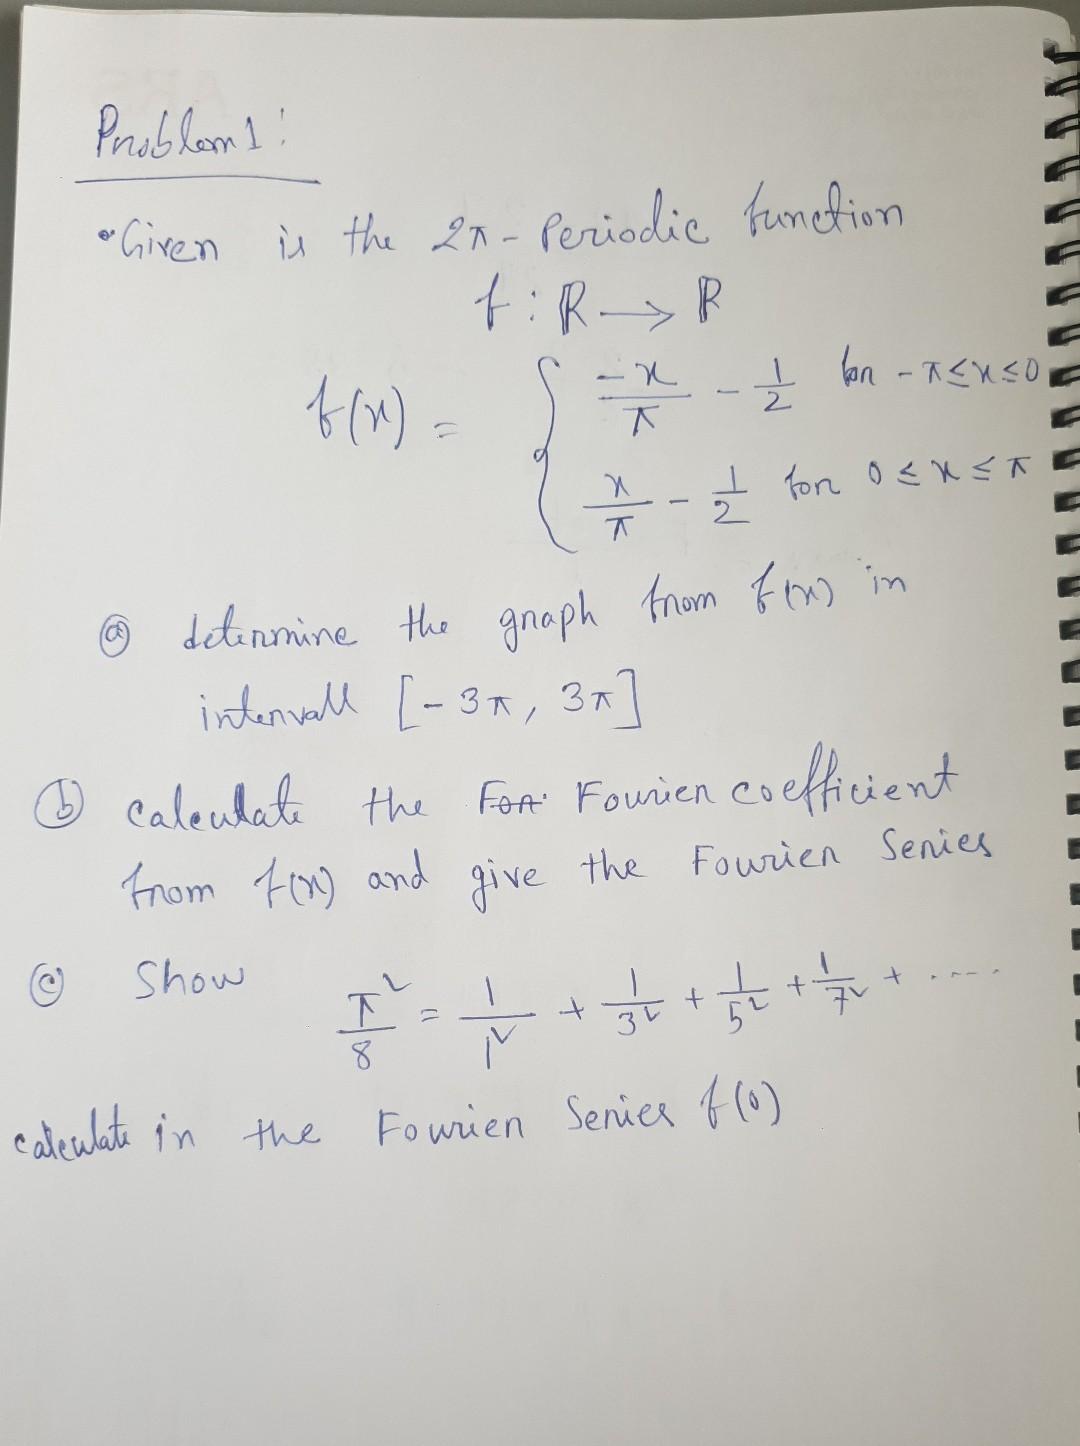 Problem 1:
• Given is the 2π - Periodic function
f : ℝ → ℝ
f(x) = { -x/π - 1/2 for -π ≤ x ≤ 0
x/π - 1/2 for 0 ≤ x ≤ π
ⓐ determine the graph from f(x) in
intervall [-3π, 3π]
ⓑ calculate the For Fourier coefficient
from f(x) and give the Fourier Series
ⓒ Show π²/8 = 1/1² + 1/3² + 1/5² + 1/7² + .....
calculate in the Fourier Series f(0)